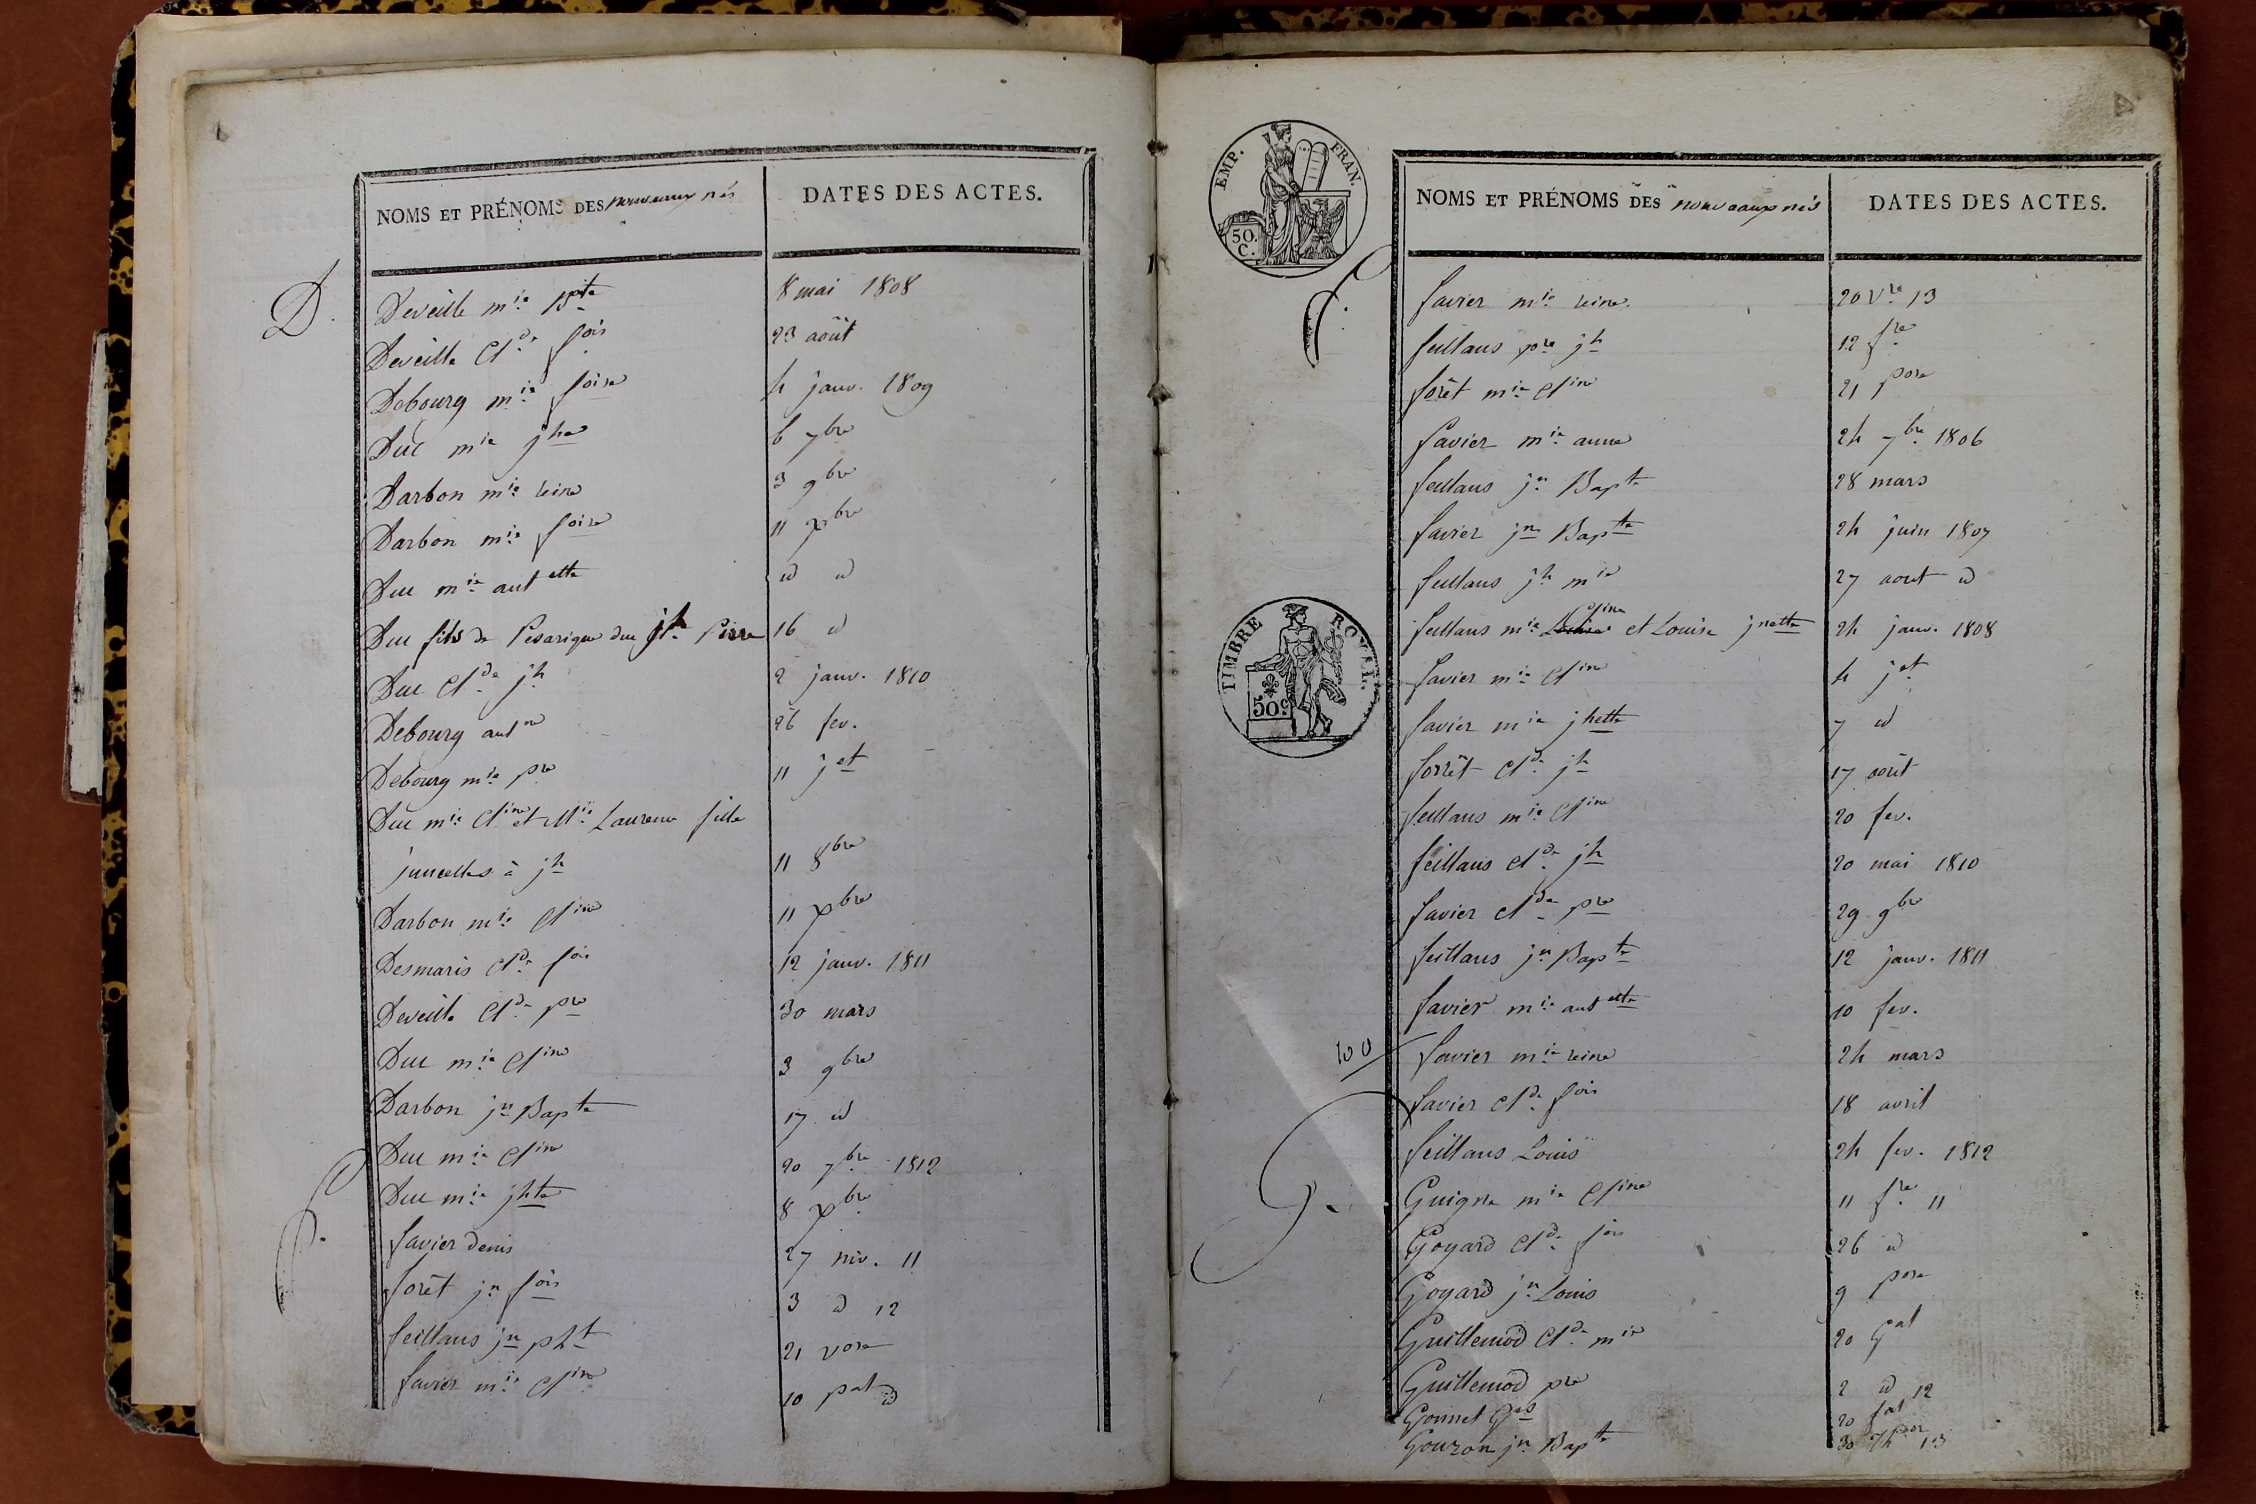 NOMS ET PRÉNOMS DES nouveaux nés DATES DES ACTES.
D.
Deveille mie Bpte 8 mai 1808
Deveille Clde fois 23 août
Debourg mie foise 4 janv. 1809
Duc mie jhe 6 7bre
Darbon mie reine 3 9bre
Darbon mie foise 11 xbre
Duc mie antette id id
Duc fils de Duc jh Pierre 16 id
Duc Clde jh 2 janv. 1810
Debourg antne 26 fev.
Debourg mie pre 11 jet
Duc mie Cline et Mie Laurence fille
jumelles à jh 11 8bre
Darbon mie Cline 11 xbre
Desmaris Clde fois 12 janv. 1811
Deveille Clde pre 30 mars
Duc mie Cline 3 9bre
Darbon jn Bapte 17 id
Duc mie Cline 20 7bre 1812
Duc mie jhte 8 xbre
f.
favier Denis 27 niv. 11
forêt jn fois 3 d 12
feillans jn pht 21 vose
favier mie Cline 10 pal id
EMP. FRAN.
50. C.
NOMS ET PRÉNOMS DES nouveaux nés DATES DES ACTES.
f.
favier mie reine. 20 Vre 13
feillans pre jh 12 fre
forêt mie Cline 21 pose
favier mie anne 24 7bre 1806
feillans jn Bapte 28 mars
favier jn Bapte 24 juin 1807
feillans jh mie 27 aout id
TIMBRE ROYAL.
50c
feillans mie Cline et Louise jnette 24 janv. 1808
favier mie Cline 4 jet
favier mie jhette 7 id
forrêt Clde jh 17 août
feillans mie Cline 20 fev.
feillans Clde jh 20 mai 1810
favier Clde pre 29 9bre
feillans jn Bapte 12 janv. 1811
favier mie antette 10 fev.
100
favier mie reine 24 mars
favier Clde fois 18 avril
feillans Louis 24 fev. 1812
G.
Guigne mie Cline 11 fre 11
Goyard Clde fois 26 id
Goyard jn Louis 9 pose
Guillemod Clde mie 20 Gal
Guillemod pre 2 id 12
Gonnet Ges 20 fal
Gouzon jn Bapte 30 Thor 13